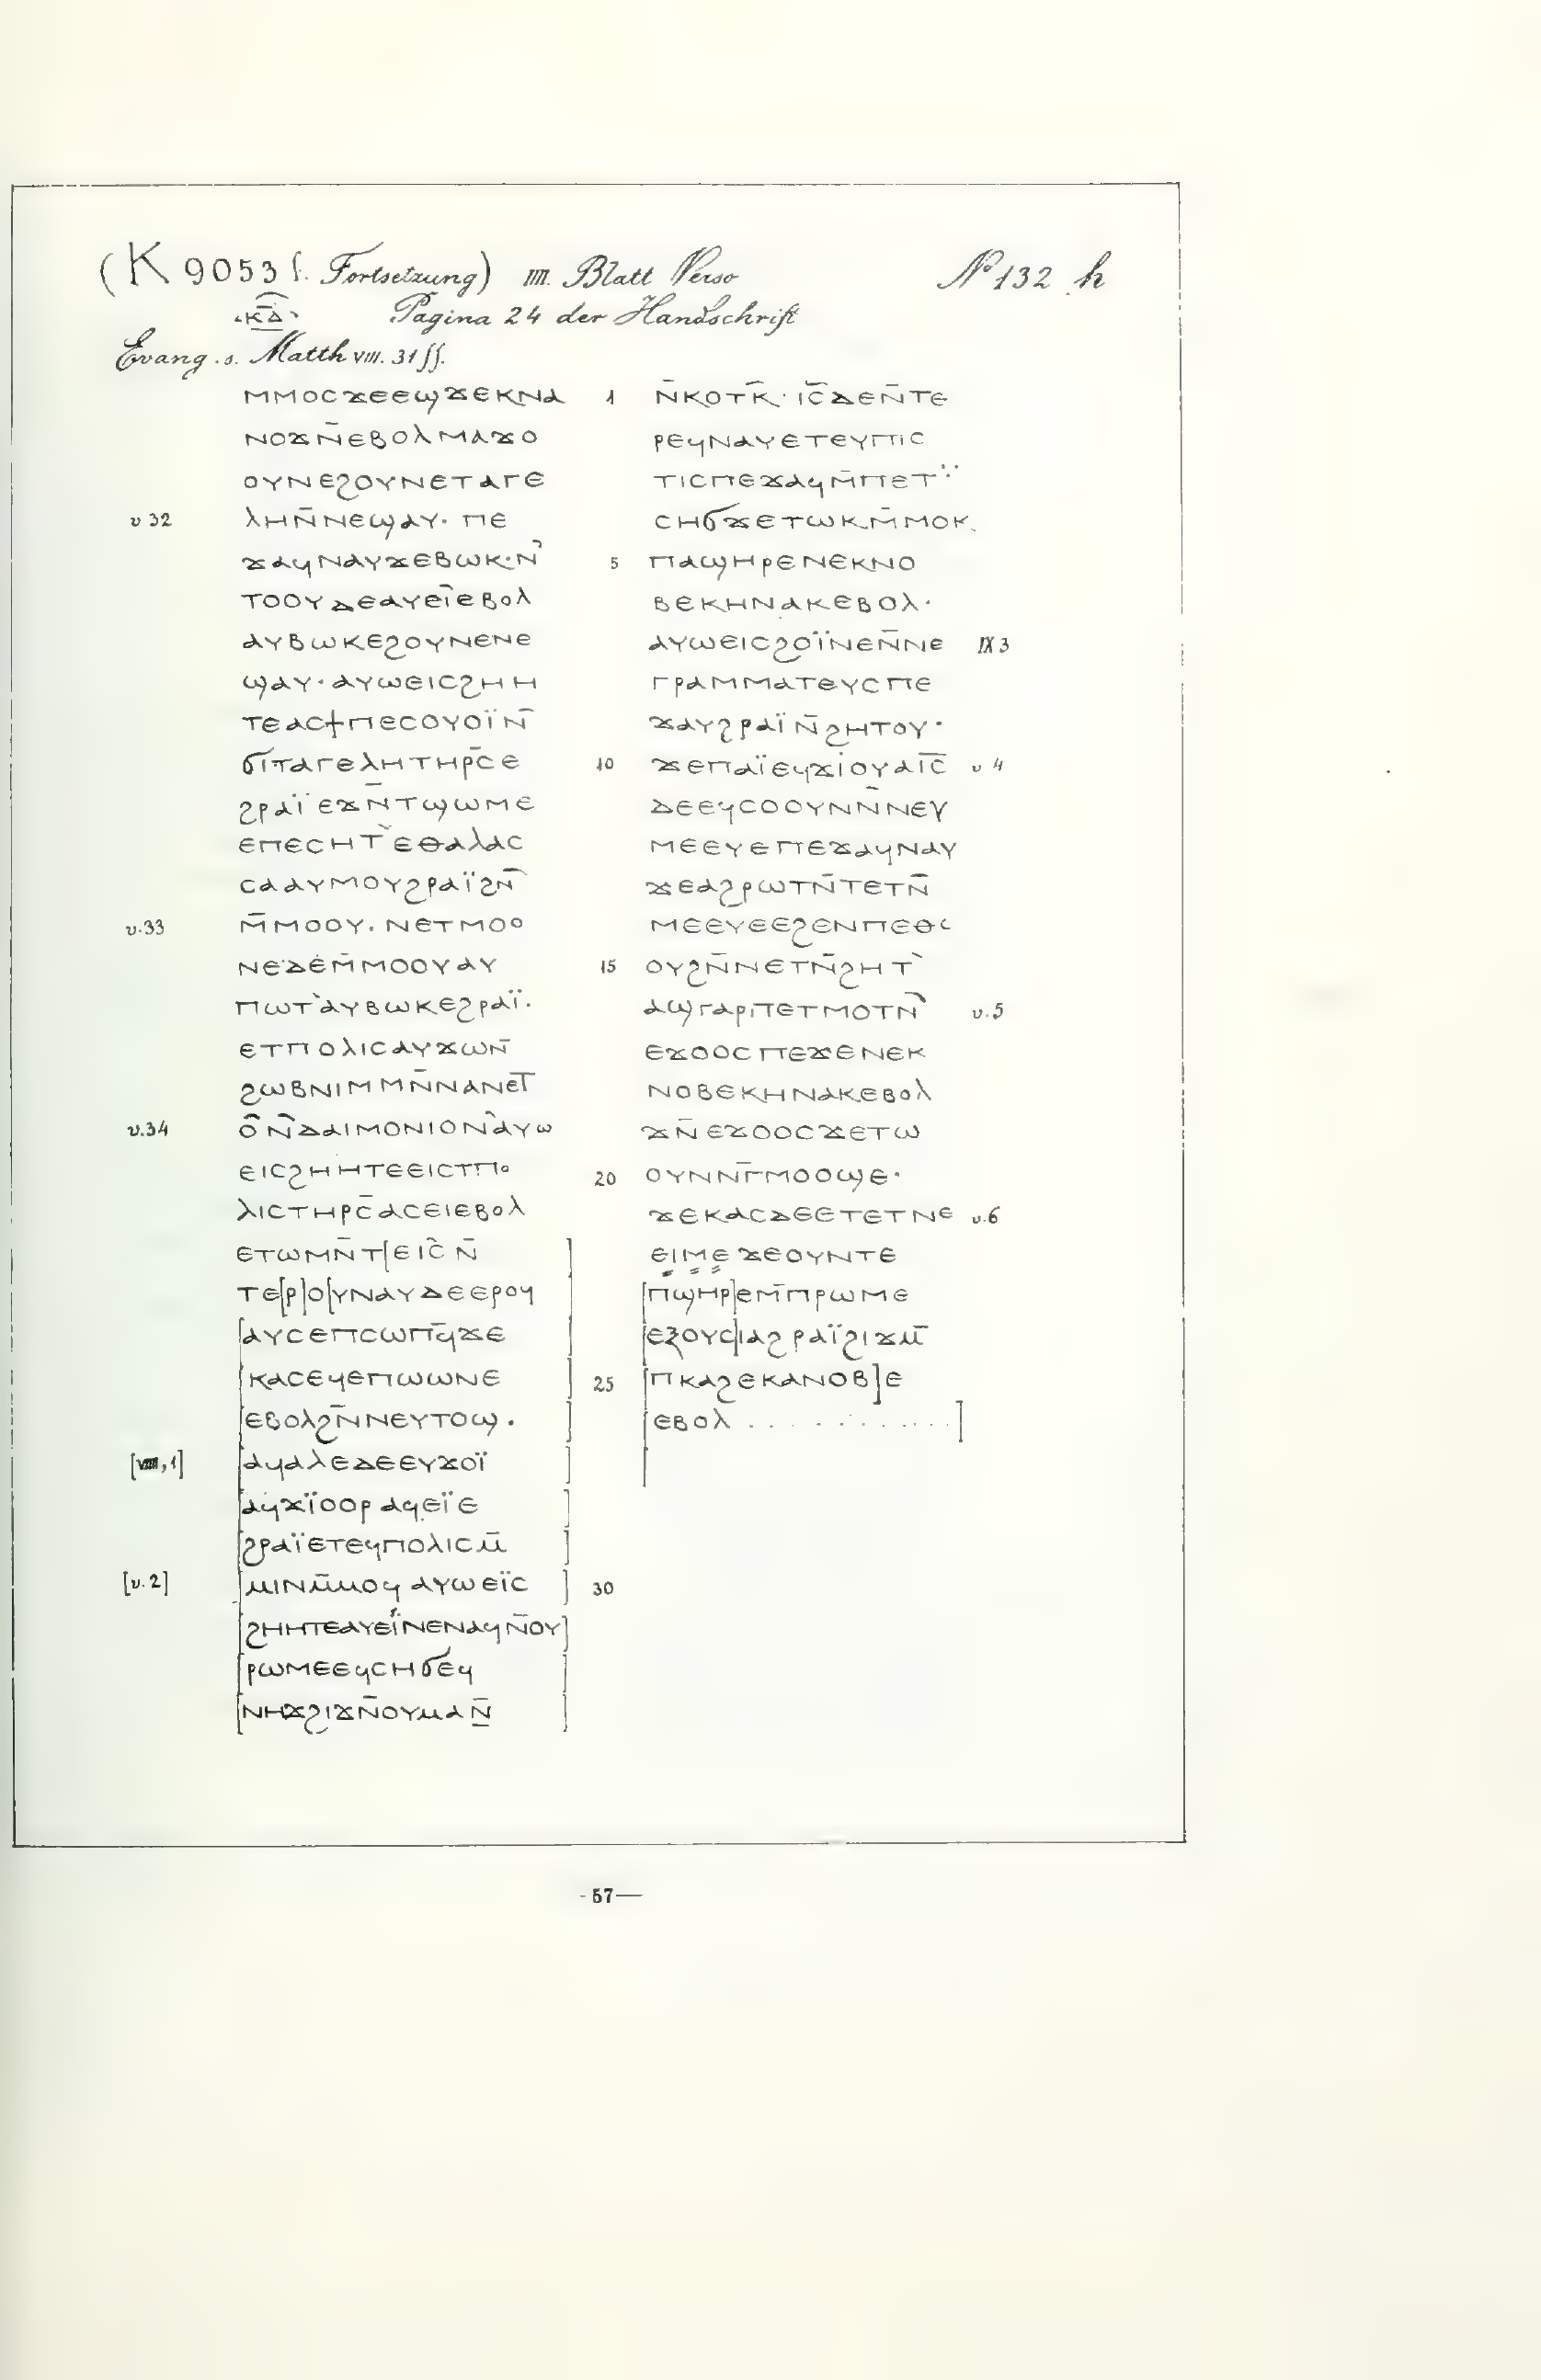 (K 9053 f. Fortsetzung) IIII. Blatt Verso
No 132 h
ⲕ̅ⲇ̅
Pagina 24 der Handschrift
Evang. s. Matth VIII. 31 ff.
ⲙⲙⲟⲥϫⲉⲉϣϫⲉⲕⲛⲁ
ⲛⲟϫⲛ̅ⲉⲃⲟⲗⲙⲁϫⲟ
ⲟⲩⲛⲉϩⲟⲩⲛⲉⲧⲁⲅⲉ
v 32 ⲗⲏⲛ̅ⲛⲉϣⲁⲩ· ⲡⲉ
ϫⲁϥⲛⲁⲩϫⲉⲃⲱⲕ·ⲛ̅
ⲧⲟⲟⲩⲇⲉⲁⲩⲉⲓ̈ⲉⲃⲟⲗ
ⲁⲩⲃⲱⲕⲉϩⲟⲩⲛⲉⲛⲉ
ϣⲁⲩ·ⲁⲩⲱⲉⲓⲥϩⲏⲏ
ⲧⲉⲁⲥϯⲡⲉⲥⲟⲩⲟⲓ̈ⲛ̅
ϭⲓⲧⲁⲅⲉⲗⲏⲧⲏⲣⲥ̅ⲉ
ϩⲣⲁⲓ̈ⲉϫⲛ̅ⲧϣⲱⲙⲉ
ⲉⲡⲉⲥⲏⲧ̀ⲉⲑⲁⲗⲁⲥ
ⲥⲁⲁⲩⲙⲟⲩϩⲣⲁⲓ̈ϩⲛ̅
v.33 ⲙ̅ⲙⲟⲟⲩ. ⲛⲉⲧⲙⲟⲟ
ⲛⲉⲇⲉⲙ̅ⲙⲟⲟⲩⲁⲩ
ⲡⲱⲧ̀ⲁⲩⲃⲱⲕⲉϩⲣⲁⲓ̈·
ⲉⲧⲡⲟⲗⲓⲥⲁⲩϫⲱⲛ̅
ϩⲱⲃⲛⲓⲙⲙⲛ̅ⲛⲁⲛⲉⲧ̅
v.34 ⲟ̂ⲛ̅ⲇⲁⲓⲙⲟⲛⲓⲟⲛ̀ⲁⲩⲱ
ⲉⲓⲥϩⲏⲏⲧⲉⲉⲓⲥⲧⲡⲟ
ⲗⲓⲥⲧⲏⲣⲥ̅ⲁⲥⲉⲓⲉⲃⲟⲗ
ⲉⲧⲱⲙⲛ̅ⲧ[ⲉⲓ̅ⲥ̅ ⲛ̅]
ⲧⲉ[ⲣ]ⲟ[ⲩⲛⲁⲩⲇⲉⲉⲣⲟϥ
[ⲁⲩⲥⲉⲡⲥⲱⲡϥ̅ϫⲉ]
[ⲕⲁⲥⲉϥⲉⲡⲱⲱⲛⲉ]
[ⲉⲃⲟⲗϩⲛ̅ⲛⲉⲩⲧⲟϣ.]
[VIIII,1] [ⲁϥⲁⲗⲉⲇⲉⲉⲩϫⲟⲓ̈]
[ⲁϥϫⲓ̈ⲟⲟⲣ ⲁϥⲉⲓ̈ⲉ]
[ϩⲣⲁⲓ̈ⲉⲧⲉϥⲡⲟⲗⲓⲥⲙ̅]
[v.2] [ⲙⲓⲛⲙ̅ⲙⲟϥ ⲁⲩⲱⲉⲓ̈ⲥ]
[ϩⲏⲏⲧⲉⲁⲩⲉⲓ̈ⲛⲉⲛⲁϥⲛ̅ⲟⲩ]
[ⲣⲱⲙⲉⲉϥⲥⲏϭⲉϥ]
[ⲛⲏϫϩⲓϫⲛ̅ⲟⲩⲙⲁⲛ̅]
1 ⲛ̅ⲕⲟⲧⲕ̅· ⲓ̅ⲥ̅ⲇⲉⲛ̅ⲧⲉ
ⲣⲉϥⲛⲁⲩⲉⲧⲉⲩⲡⲓⲥ
ⲧⲓⲥⲡⲉϫⲁϥⲙ̅ⲡⲉⲧ
ⲥⲏϭϫⲉⲧⲱⲕ.ⲙ̅ⲙⲟⲕ.
5 ⲡⲁϣⲏⲣⲉⲛⲉⲕⲛⲟ
ⲃⲉⲕⲏⲛⲁⲕⲉⲃⲟⲗ·
ⲁⲩⲱⲉⲓⲥϩⲟⲓ̈ⲛⲉⲛ̅ⲛⲉ IX 3
ⲅⲣⲁⲙⲙⲁⲧⲉⲩⲥⲡⲉ
ϫⲁⲩϩⲣⲁⲓ̈ⲛ̅ϩⲏⲧⲟⲩ·
10 ϫⲉⲡⲁⲓ̈ⲉϥϫⲓⲟⲩⲁⲓ̅ⲥ̅ v 4
ⲇⲉⲉϥⲥⲟⲟⲩⲛⲛ̅ⲛⲉⲩ
ⲙⲉⲉⲩⲉⲡⲉϫⲁϥⲛⲁⲩ
ϫⲉⲁϩⲣⲱⲧⲛ̅ⲧⲉⲧⲛ̅
ⲙⲉⲉⲩⲉⲉϩⲉⲛⲡⲉⲑⲟ
15 ⲟⲩϩⲛ̅ⲛⲉⲧⲛ̅ϩⲏⲧ̀
ⲁϣⲅⲁⲣⲡⲉⲧⲙⲟⲧⲛ̅ v.5
ⲉϫⲟⲟⲥⲡⲉϫⲉⲛⲉⲕ
ⲛⲟⲃⲉⲕⲏⲛⲁⲕⲉⲃⲟⲗ
ϫⲛ̅ⲉϫⲟⲟⲥϫⲉⲧⲱ
20 ⲟⲩⲛⲛⲅ̅ⲙⲟⲟϣⲉ·
ϫⲉⲕⲁⲥⲇⲉⲉⲧⲉⲧⲛⲉ v.6
ⲉⲓⲙⲉ ϫⲉⲟⲩⲛⲧⲉ
[ⲡϣⲏⲣ]ⲉⲙ̅ⲡⲣⲱⲙⲉ
[ⲉⲝⲟⲩⲥ]ⲓⲁϩⲣⲁⲓ̈ϩⲓϫⲙ̅
25 [ⲡⲕⲁϩⲉⲕⲁⲛⲟⲃ]ⲉ
[ⲉⲃⲟⲗ . . . . . . . . . . .]
30
- 57 —